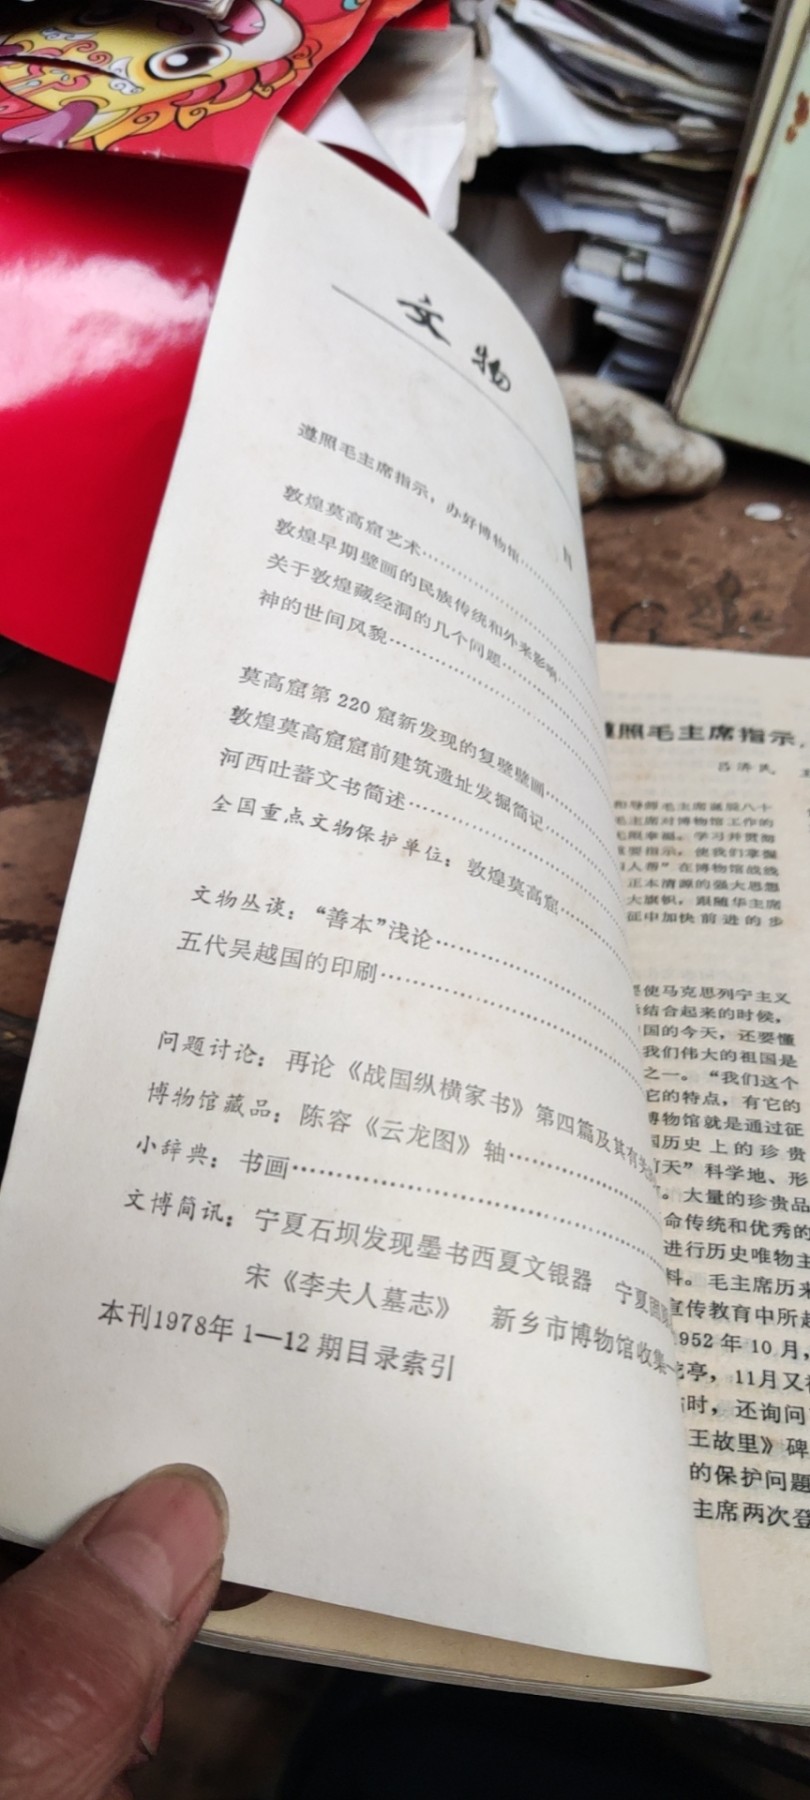 文物
遵照毛主席指示，办好博物馆
敦煌莫高窟艺术
敦煌早期壁画的民族传统和外来影响
关于敦煌藏经洞的几个问题
神的世间风貌
莫高窟第220窟新发现的复壁壁画
敦煌莫高窟窟前建筑遗址发掘简记
河西吐蕃文书简述
全国重点文物保护单位：敦煌莫高窟
文物丛谈：“善本”浅论
五代吴越国的印刷
问题讨论：再论《战国纵横家书》第四篇及其有关
博物馆藏品：陈容《云龙图》轴
小辞典：书画
文博简讯：宁夏石坝发现墨书西夏文银器 宁夏固原
宋《李夫人墓志》 新乡市博物馆收集
本刊1978年1—12期目录索引
照毛主席指示，
吕济民
导师毛主席诞辰八十
毛主席对博物馆工作的
无限幸福。学习并贯彻
重要指示，使我们掌握
人帮”在博物馆战线
正本清源的强大思想
大旗帜，跟随华主席
征中加快前进的步
要使马克思列宁主义
结合起来的时候，
国的今天，还要懂
我们伟大的祖国是
之一。“我们这个
它的特点，有它的
博物馆就是通过征
国历史上的珍贵
天”科学地、形
。大量的珍贵品
命传统和优秀的
进行历史唯物主
料。毛主席历来
宣传教育中所起
952年10月，
亭，11月又
时，还询问
王故里》碑
的保护问题
主席两次登